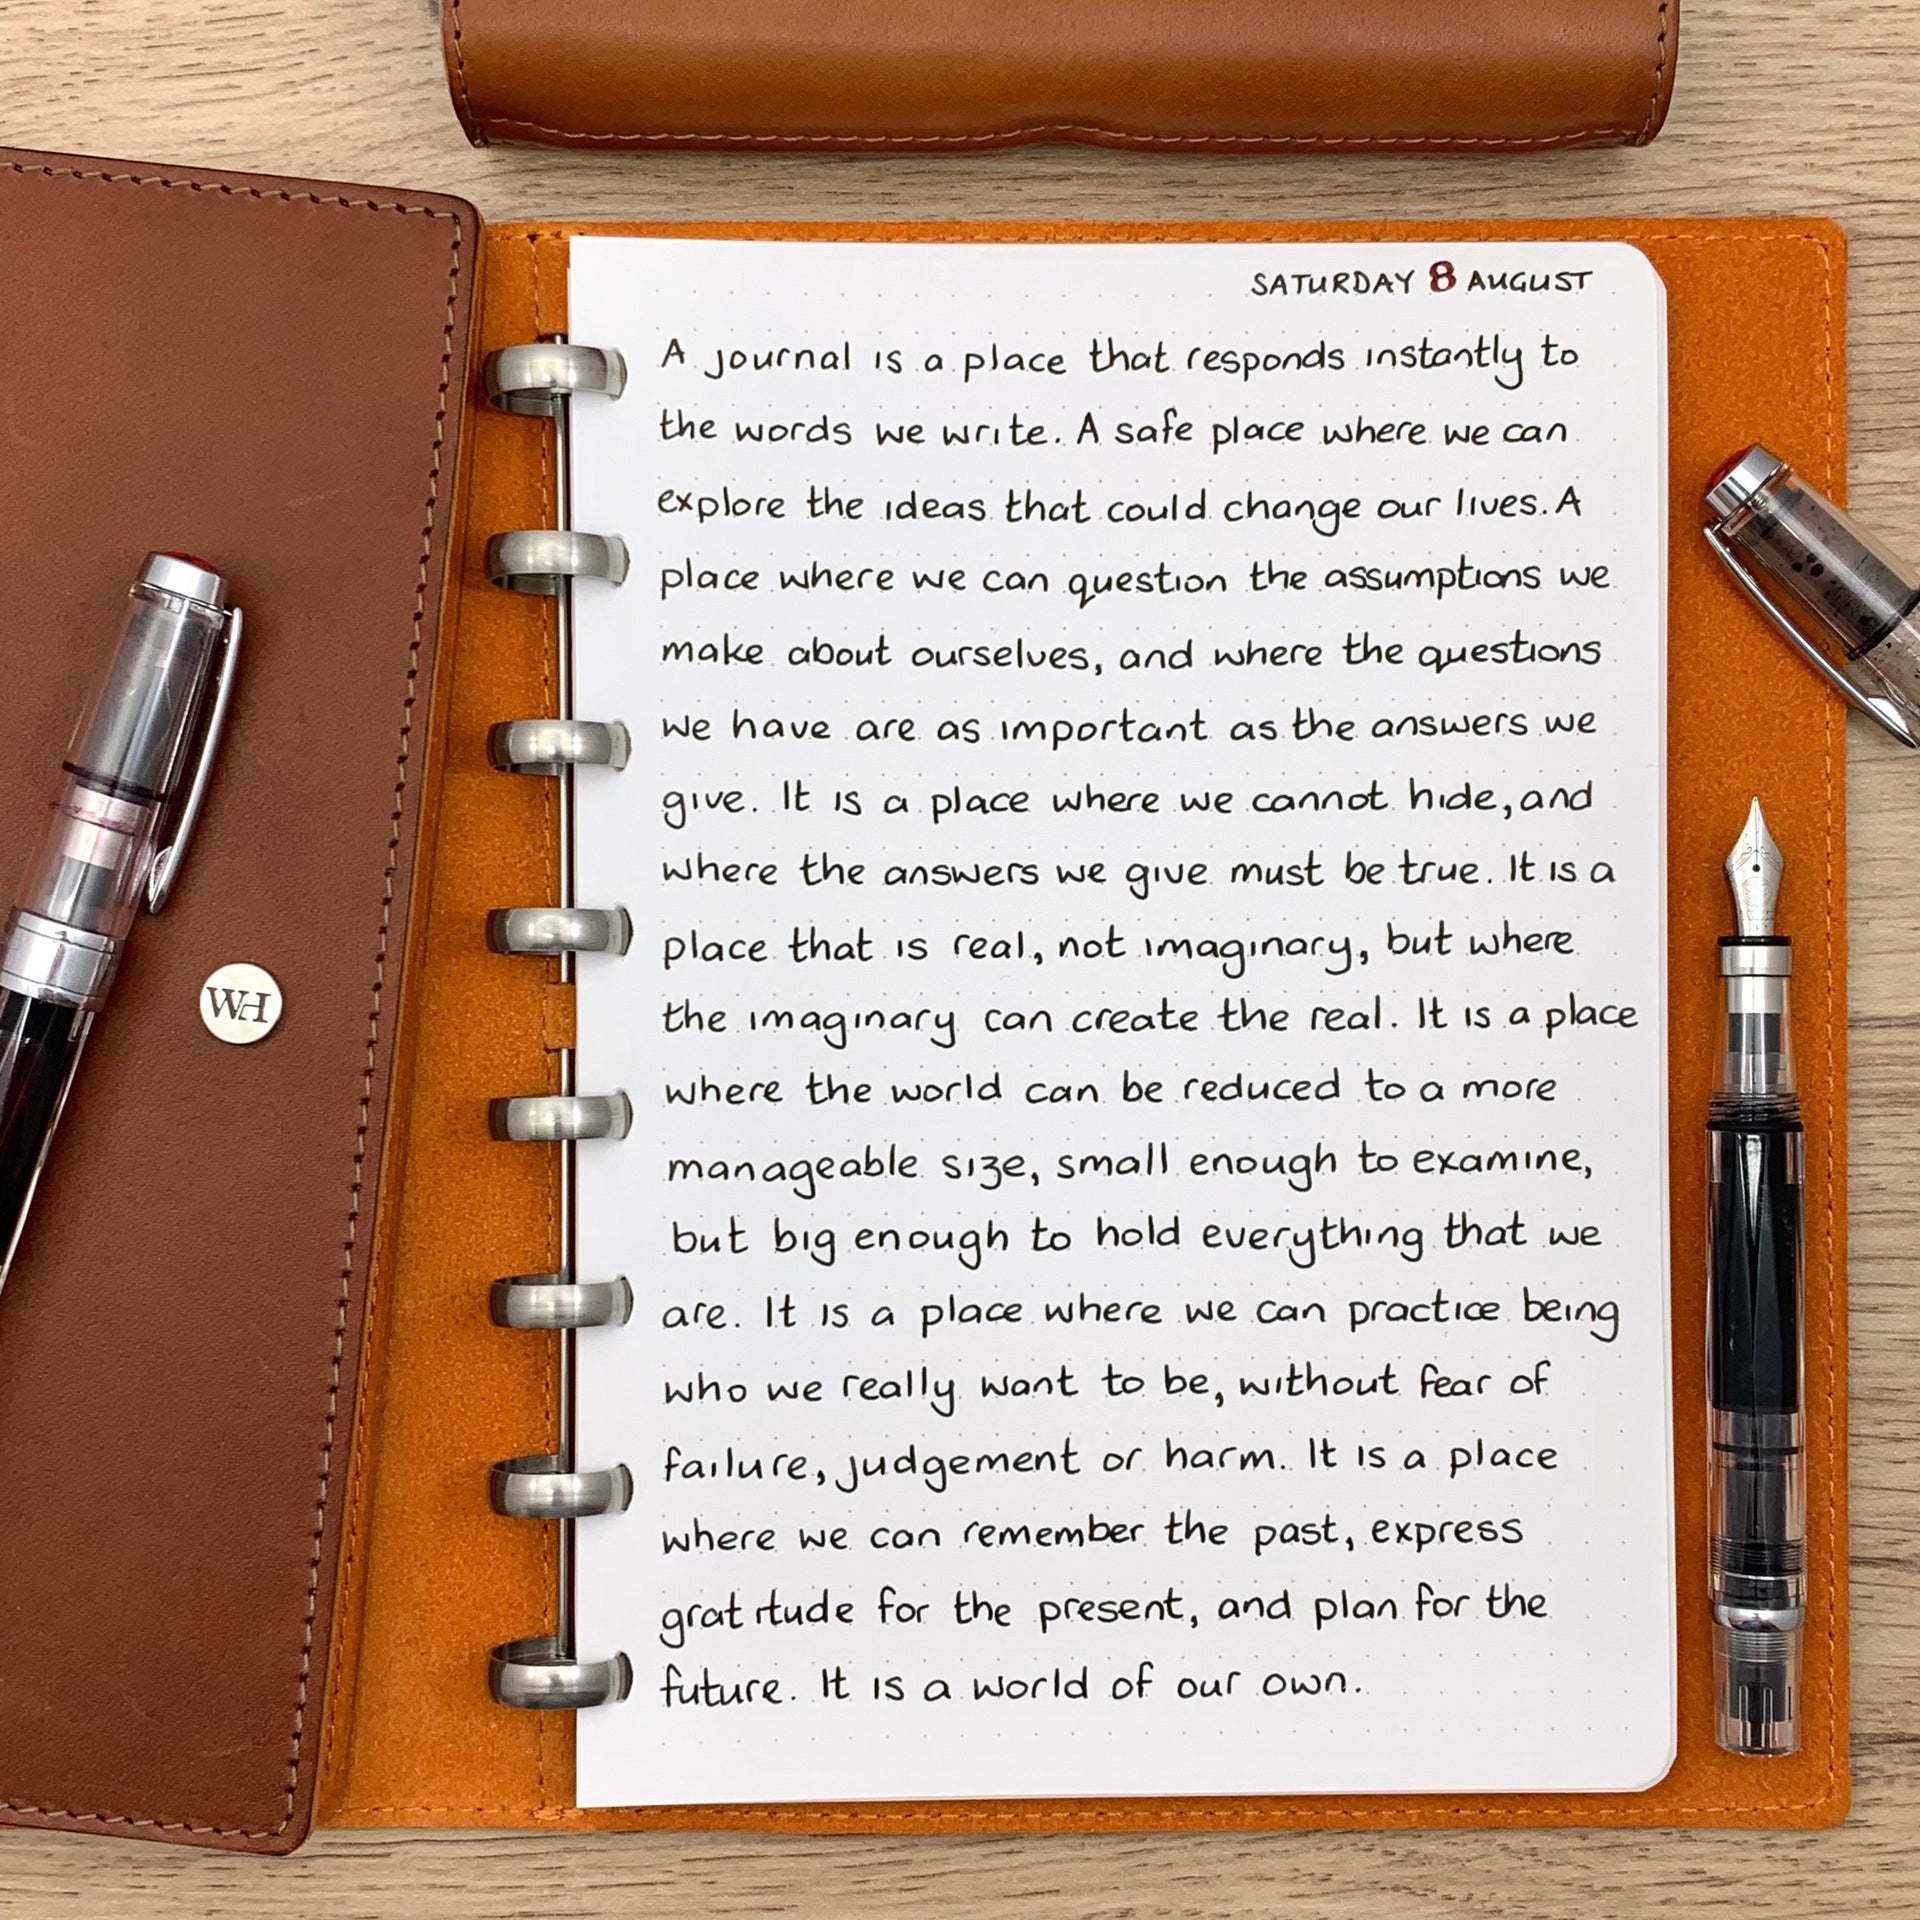 SATURDAY 8 AUGUST
A journal is a place that responds instantly to
the words we write. A safe place where we can
explore the ideas that could change our lives. A
place where we can question the assumptions we
make about ourselves, and where the questions
we have are as important as the answers we
give. It is a place where we cannot hide, and
where the answers we give must be true. It is a
place that is real, not imaginary, but where
the imaginary can create the real. It is a place
where the world can be reduced to a more
manageable size, small enough to examine,
but big enough to hold everything that we
are. It is a place where we can practice being
who we really want to be, without fear of
failure, judgement or harm. It is a place
where we can remember the past, express
gratitude for the present, and plan for the
future. It is a world of our own.
WH